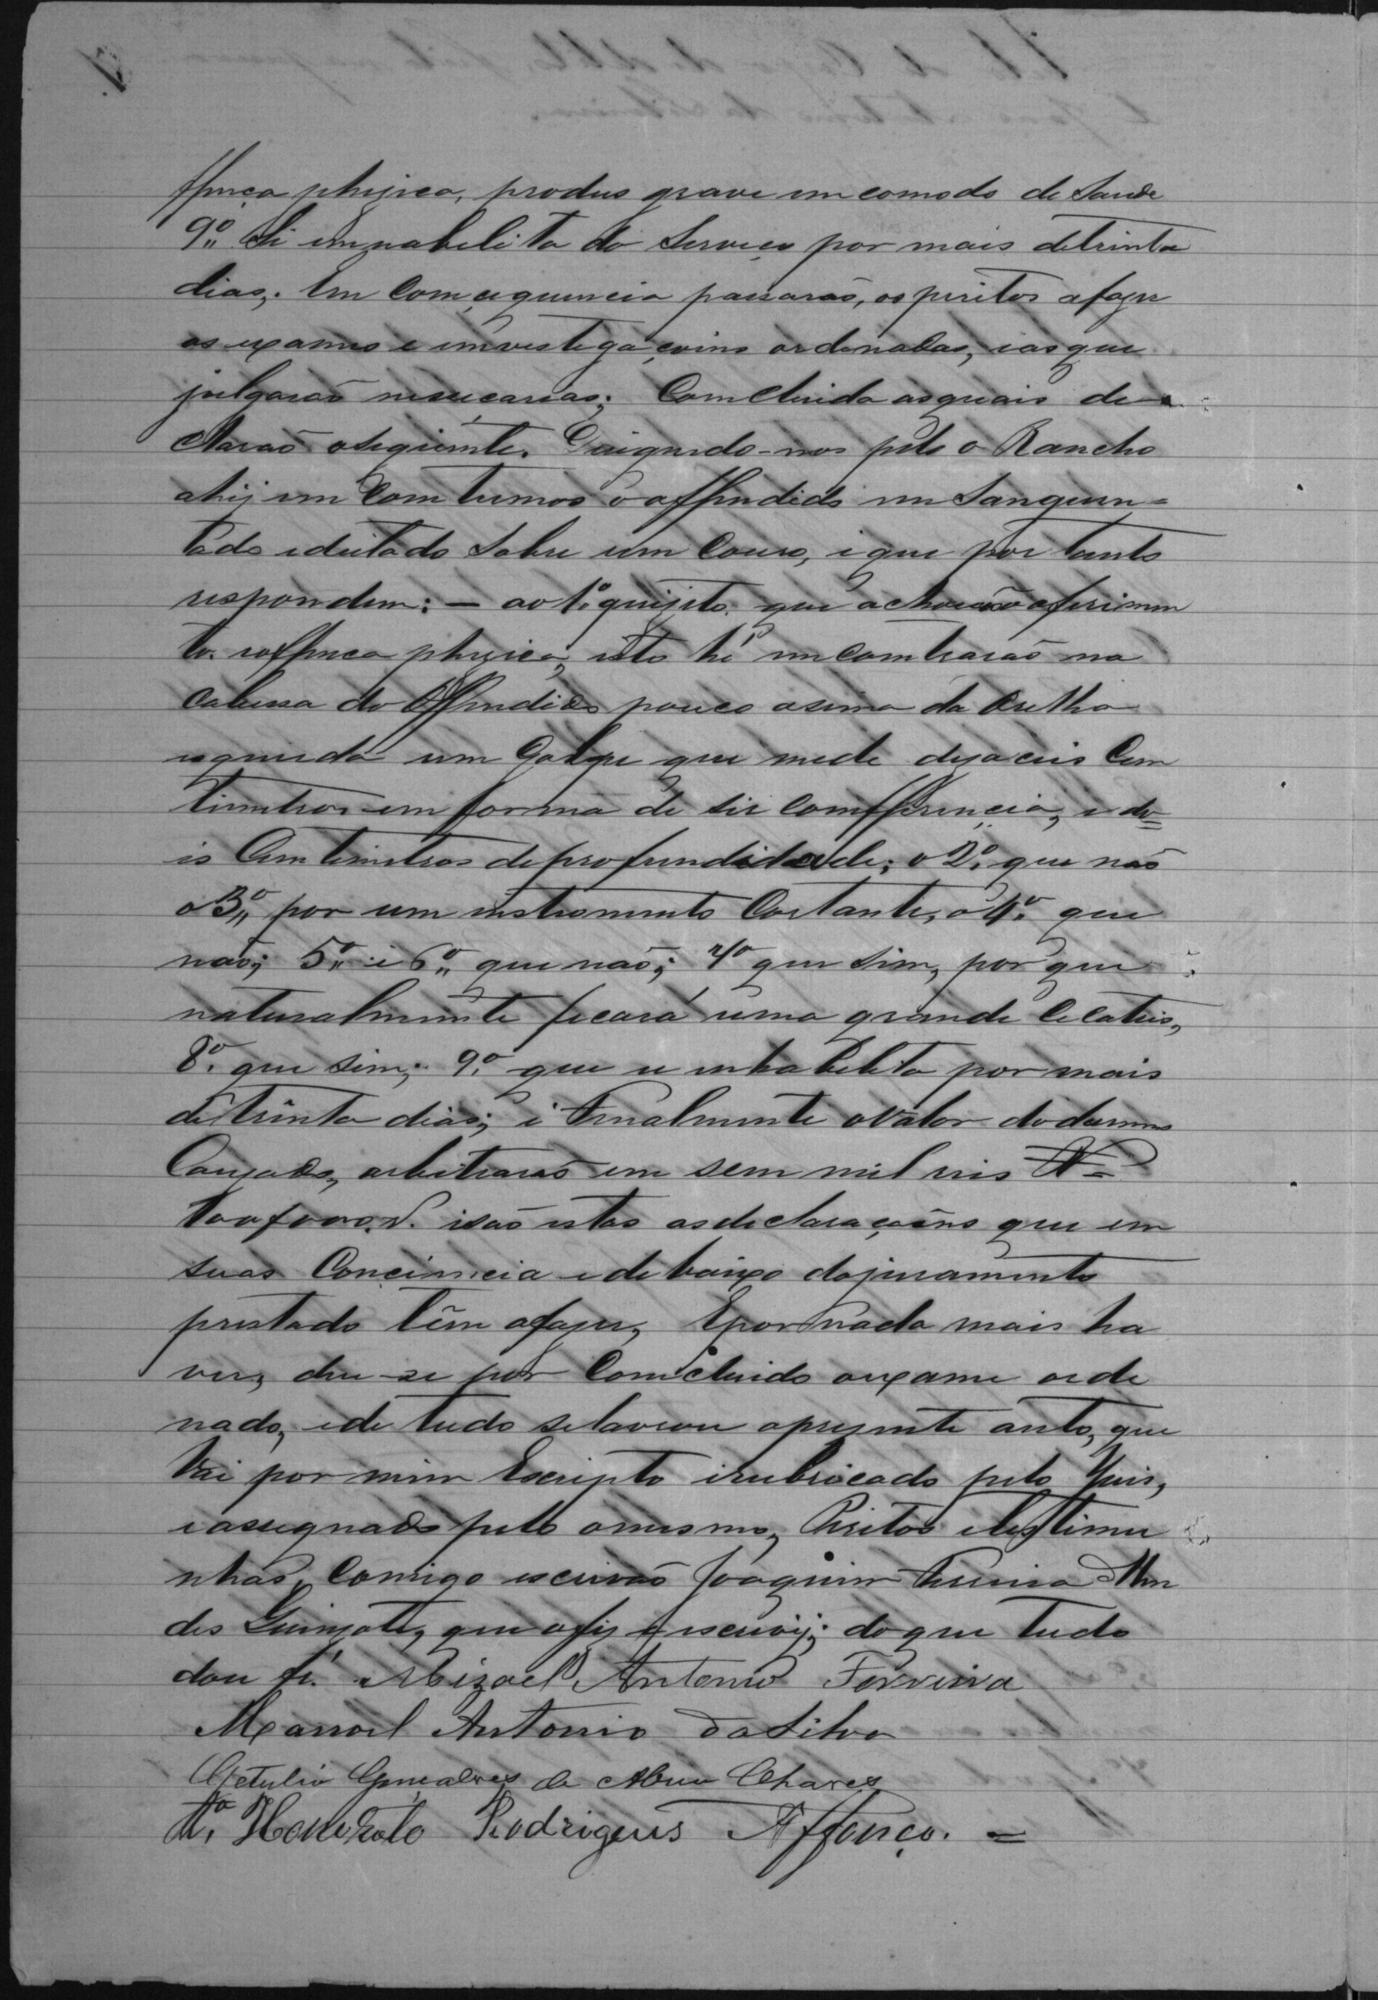 ffença phizica, produs grave emcomodo de Saude
9º Si emnabelita do Serviço por mais detrinta
dias;. Em Comcequencia passarão, os peritos afazer
os exames e imvestigaçoins ordenadas, e as que
julgarão nesecarias; Comcluida as quais de
clarão oseguinte. Derigindo-nos pelo o Rancho
ahij emComtremos o offendido em Sanguen=
tado edeitado Sobre um Couro, i que por tanto
respondem: — ao 1º quizito que achou-se o ferimen
to. e offença phizica, isto hé emcomtrarão na
Cabessa do Offendido pouco asima da Orelha
esquerda um Golpe que mede dezaceis Cen
timetros em forma de Sir Comfferencia, e do=
is Centimetros de profundidade; o 2º que não
o 3º por um instromento Cortante, o 4º que
não; 5º i 6º que não; 7º que sim, por que
naturalmente ficará uma grande Cicatris,
8º que sim; 9º que se inhabelita por mais
detrinta dias; i Finalmente o Valor do damno
Cauzado, arbitrarão em sem mil reis
100$000. isão estas asdeclaraçoins que em
suas Conciencia e debaixo dojuramento
prestado têm afazer, Epor nada mais ha
ver, deu-se por Comcluido oexame orde
nado, ede tudo selavrou oprezente auto, que
Vai por mim Escripto irubricado pelo Juis,
eassignado pelo omesmo, Peritos etestimu
nhas, Comigo escrivão Joaquim Pereira Men
des, que ofiz escrevij; do que tudo
dou fé. Mizael Antonio Ferreira
Manoel Antonio da Silva
Getulio Gonçalves de Abreu Chaves
Honorato Rodrigues Affonço. =